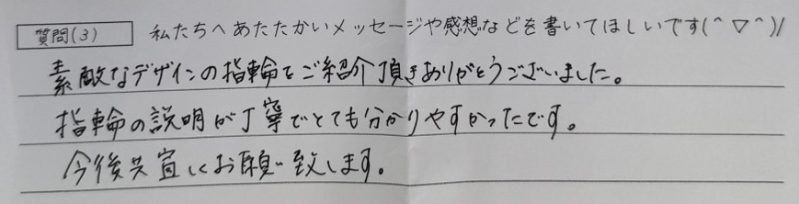 質問(3) 私たちへあたたかいメッセージや感想などを書いてほしいです(^▽^)/
素敵なデザインの指輪をご紹介頂きありがとうございました。
指輪の説明が丁寧でとても分かりやすかったです。
今後共宜しくお願い致します。